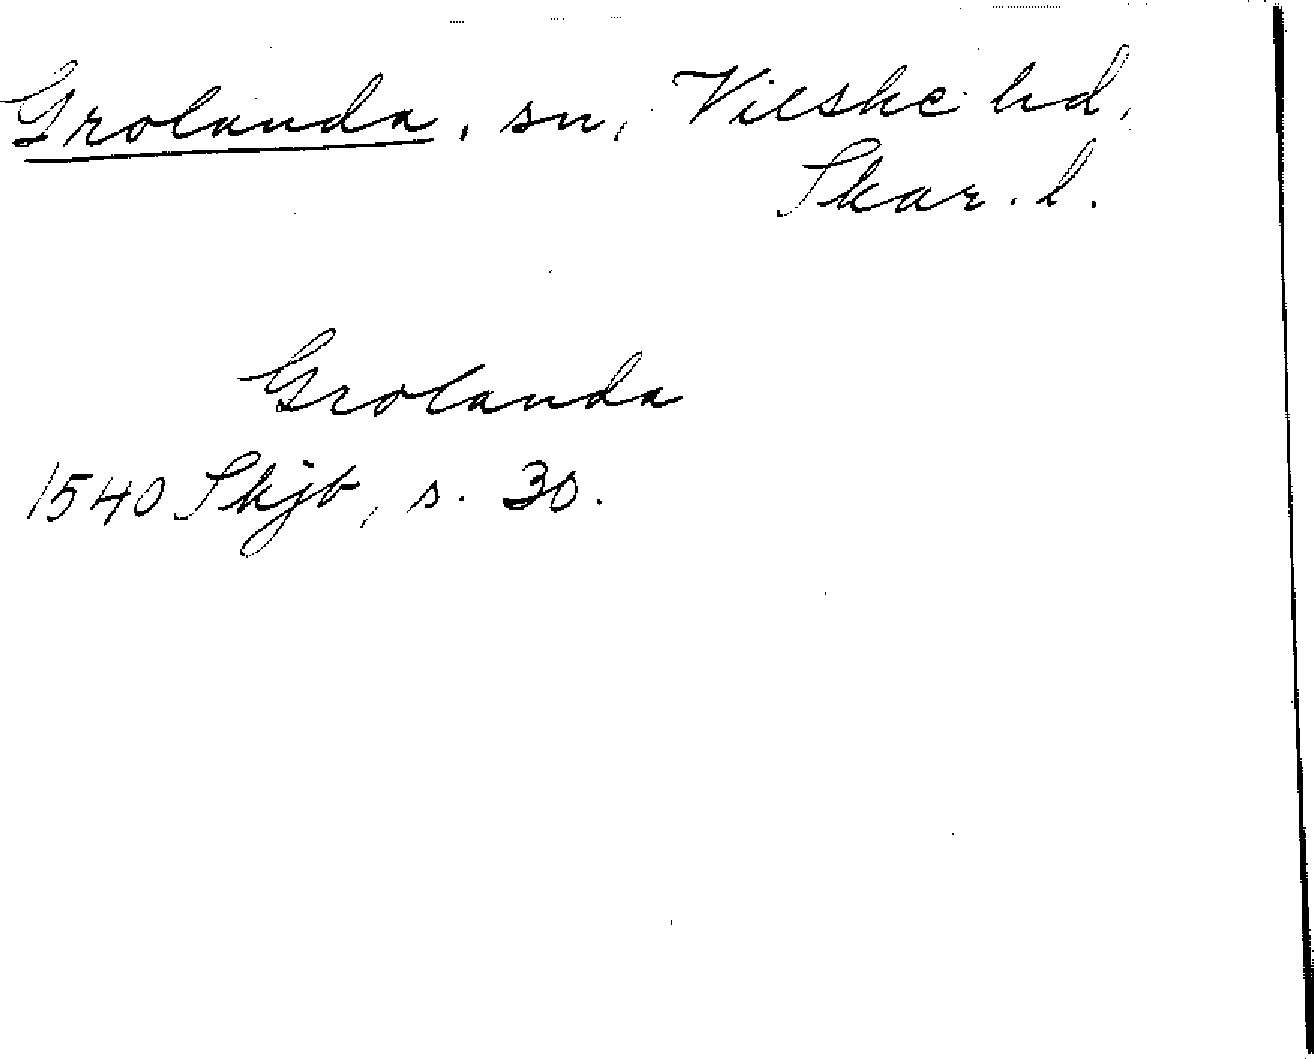 Grolanda, sn, Vilske hd,
Skar. l.
Grolanda
1540 Skjb, s. 30.